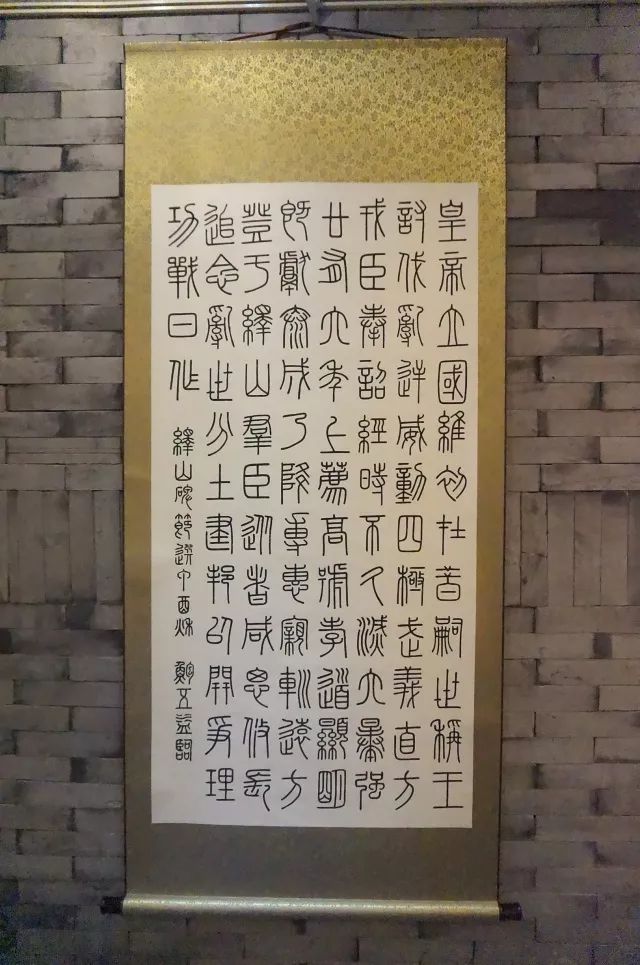 皇帝立國維初在昔嗣世稱王
討伐亂逆威動四極武義直方
戎臣奉詔經時不久滅六暴強
廿有六年上薦高號孝道顯明
既獻泰成乃降專惠親𨋚遠方
登于繹山羣臣從者咸思攸長
追念亂世分土建邦以開爭理
功戰日作
繹山碑節選丁酉秋 益臨